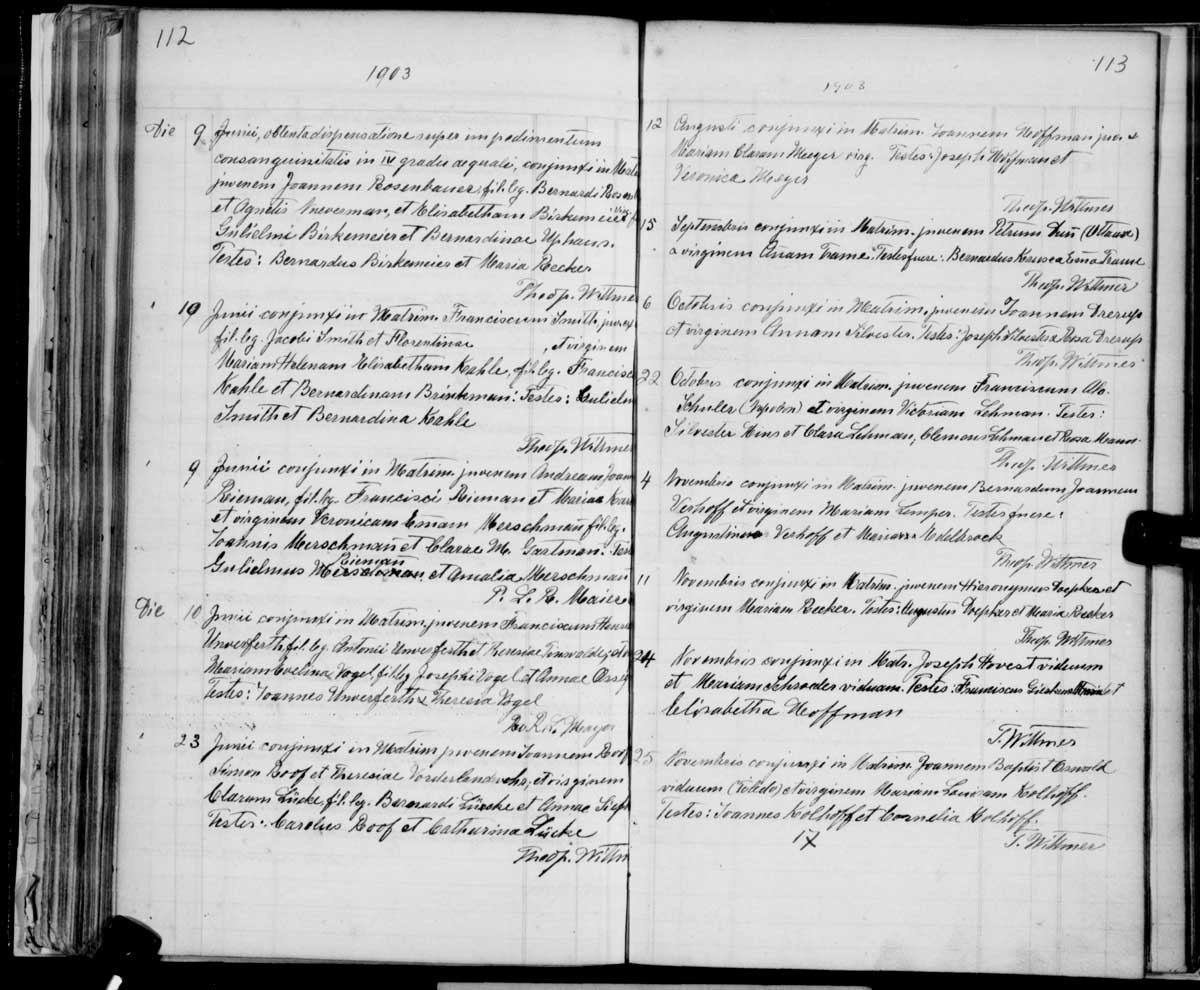 112
1903
Die 9 Junii, obtenta dispensatione super impedimentum
consanguinitatis in IV gradu aequali, conjunxi in Matr
juvenem Joannem Rosenbauer, fil. leg. Bernardi Rosen
et Agnetis Meverman, et Elisabetham Birkemeier Virg.
Gulielmi Birkemeier et Bernardinae Uphaus.
Testes: Bernardus Birkemeier et Maria Recker
Theop. Wittmer
" 10 Junii conjunxi in Matrim. Franciscum Smith juvene
fil. leg. Jacobi Smith et Florentinae , et virginem
Mariam Helenam Elisabetham Kahle, fil. leg. Francisc
Kahle et Bernardinam Brinkman: Testes: Gulielm
Smith et Bernardina Kahle
Theop. Wittmer
" 9 Junii conjunxi in Matrim. juvenem Andream Joann
Rieman, fil. leg. Francisci Rieman et Mariae
et virginem Veronicam Emam Merschman fil. leg.
Joannis Merschman et Clarae M. Gartman: Test
Rieman
Gulielmus Merschman et Amalia Merschman
P. L. R. Maier
Die 10 Junii conjunxi in Matrim. juvenem Franciscum Henr
Unverferth, fil. leg. Antonii Unverferth et Theresiae
Mariam Evelina Vogel, fil. leg. Josephi Vogel et Annae
Testes: Joannes Unverferth & Theresia Vogel
" 23 Junii conjunxi in Matrim. juvenem Joannem Roof
Simon Roof et Theresiae Vorderlandwehr, et virginem
Claram Lücke, fil. leg. Bernardi Lücke et Annae
Testes: Carolus Roof et Catharina Lücke
Theop. Wittm
113
1903
12 Augusti conjunxi in Matrim. Joannem Hoffman juv. &
Mariam Claram Meeger virg. Testes: Joseph Hoffman et
Veronica Meeger
Theop. Wittmer
15 Septembris conjunxi in Matrim. juvenem Petrum (Ottawa)
& virginem Annam Frame. Testes fuere: Bernardus
Theop. Wittmer
6 Octobris conjunxi in Matrim. juvenem Joannem Drerup
et virginem Annam Silvester. Testes: Joseph Silvester & Rosa Drerup
Theop. Wittmer
22 Octobris conjunxi in Matrim. juvenem Franciscum Alo.
Schuler (Napoleon) et virginem Victoriam Lehman. Testes:
Silvester et Clara Lehman, Clemens Lehman et Rosa
Theop. Wittmer
4 Novembris conjunxi in Matrim. juvenem Bernardum Joannem
Verhoff et virginem Mariam Lemper. Testes fuere:
Augustinus Verhoff et Maria Nedelbrock
Theop. Wittmer
11 Novembris conjunxi in Matrim. juvenem Hieronymus Doepker et
virginem Mariam Recker. Testes: Augustus Doepker et Maria Recker
Theop. Wittmer
24 Novembris conjunxi in Matr. Joseph Hovest viduum
et Mariam Schroder viduam. Testes: Franciscus et
Elisabetha Hoffman
T. Wittmer
25 Novembris conjunxi in Matrim. Joannem Baptist Oswald
viduum (Toledo) et virginem Mariam Louisam Kolhoff.
Testes: Joannes Kolhoff et Cornelia Kolhoff.
17 T. Wittmer